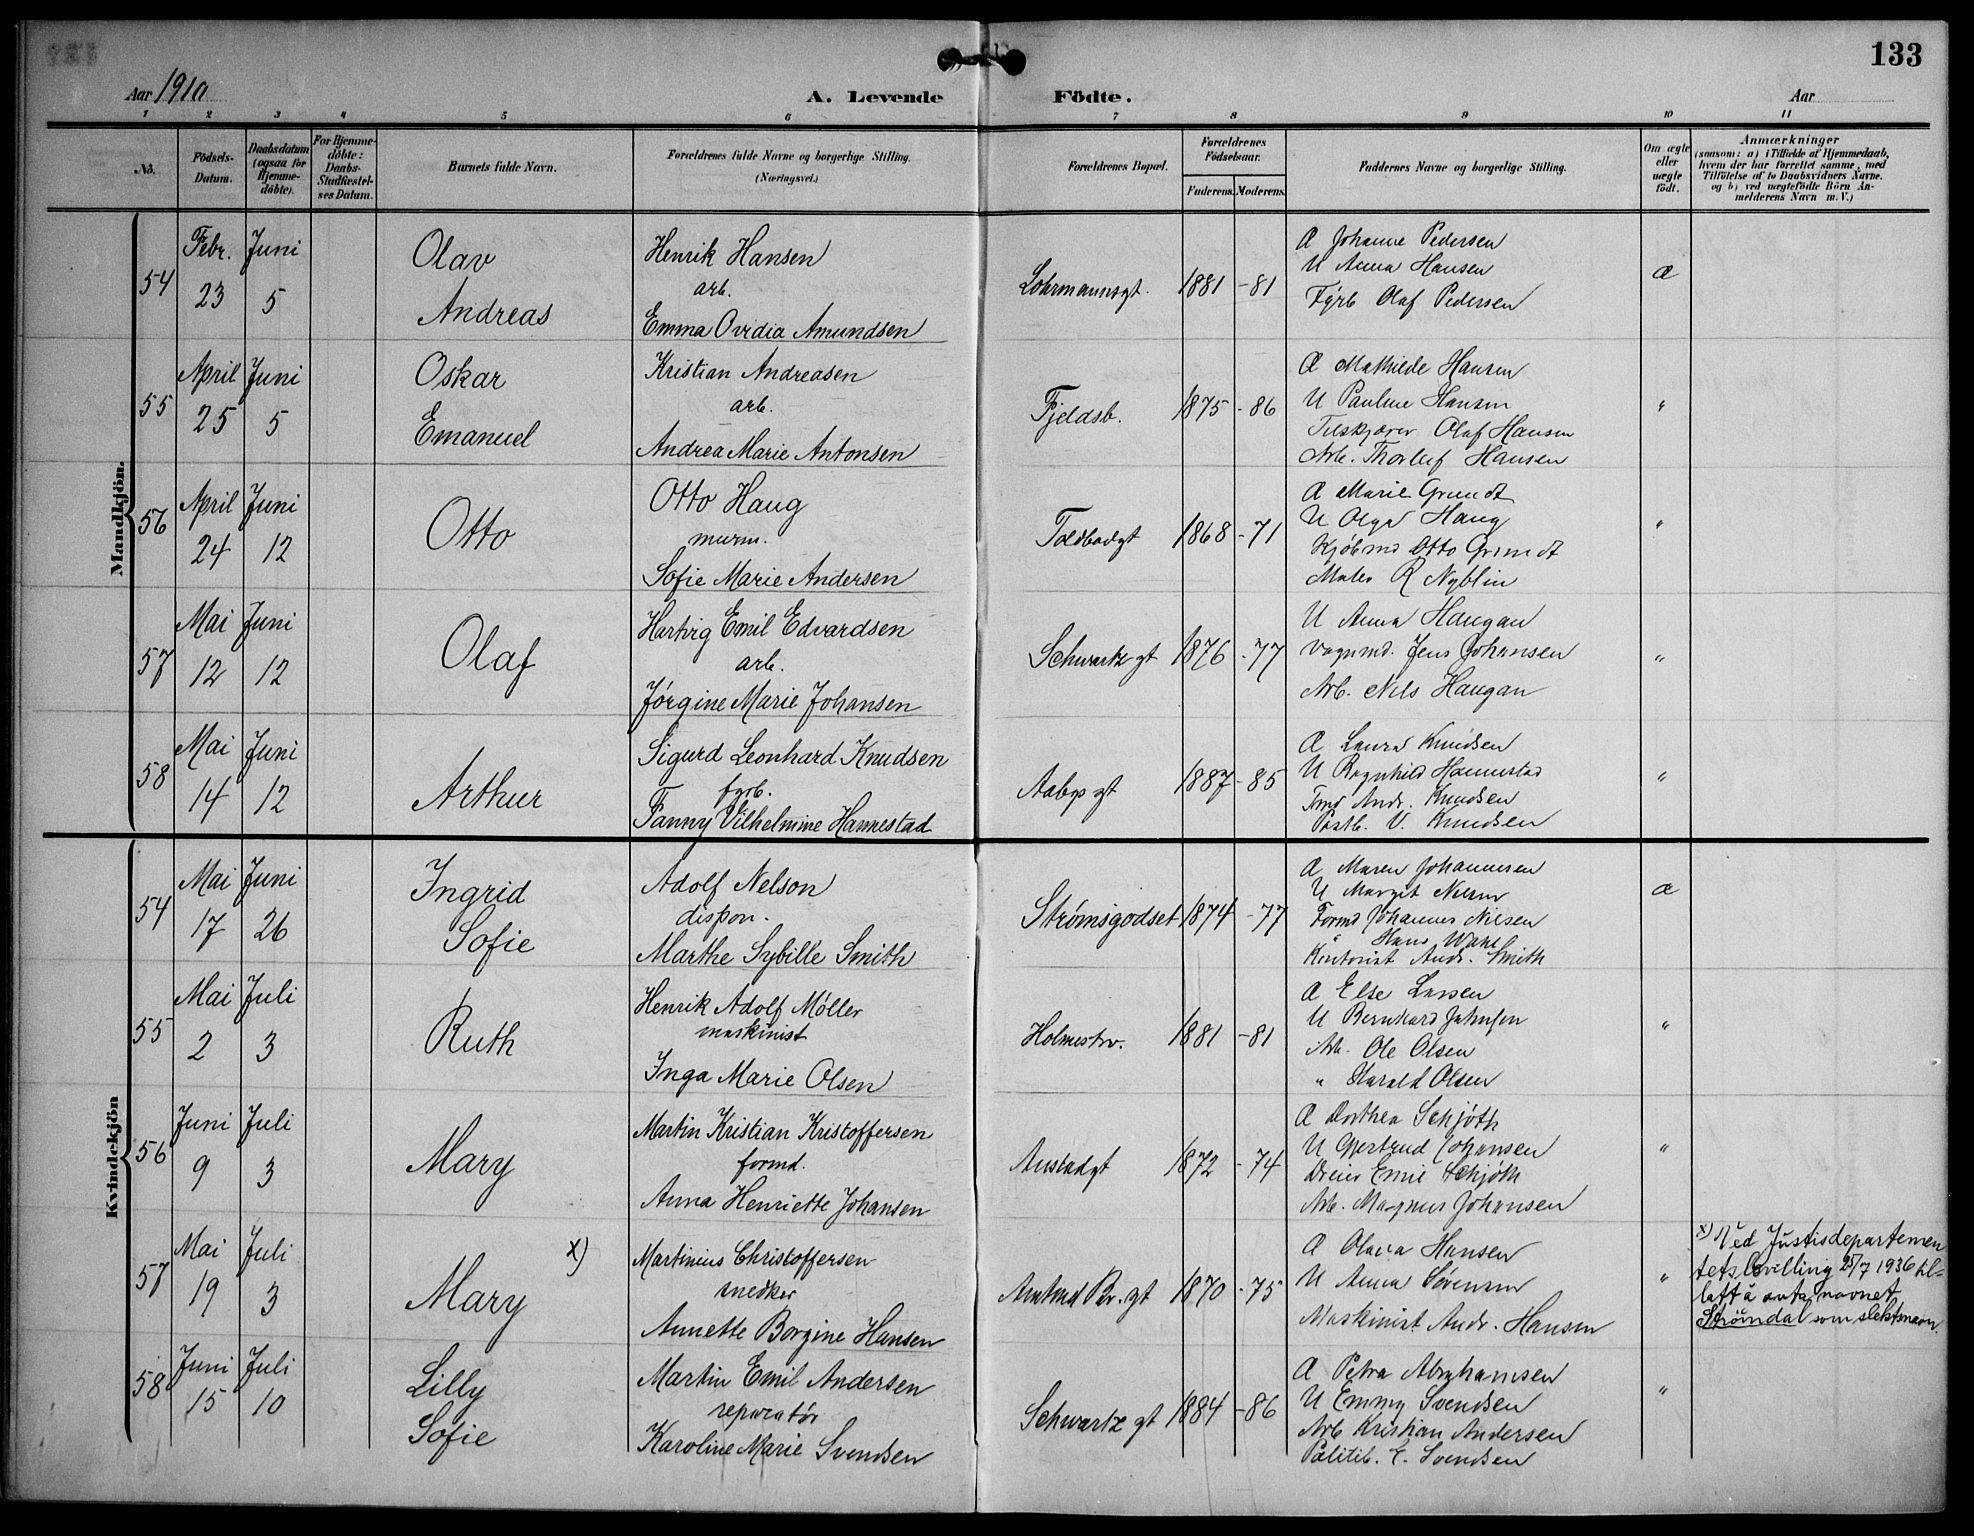 133
Aar 1910
A. Levende Födte.
Aar
1 2 3 4 5 6 7 8 9 10 11
No.
Födsels-Datum.
Daabsdatum (ogsaa for Hjemme-döbte).
For Hjemme-döbte: Daabs-Stadfæstel-ses Datum.
Barnets fulde Navn.
Forældrenes fulde Navne og borgerlige Stilling. (Næringsvei.)
Forældrenes Bopæl.
Forældrenes Födselsaar.
Faderens. Moderens.
Faddernes Navne og borgerlige Stilling.
Om ægte eller uægte födt.
Anmærkninger
(saasom: a) i Tilfælde af Hjemmedaab,
hvem der har forrettet samme, med
Tilföielse af to Daabsvidners Navne.
og b) ved uægtefödte Börn An-
melderens Navn m. V.)
Mandkjön.
54 Febr. 23 Juni 5
Olav Andreas
Henrik Hansen
arb.
Emma Ovidia Amundsen
Lohrmannsgt. 1881 - 81
Æ Johanne Pedersen
U Anna Hansen
Fyrb Olaf Pedersen
æ
55 April 25 Juni 5
Oskar Emanuel
Kristian Andreasen
arb.
Andrea Marie Antonsen
Fjeldsb. 1875 - 86
Æ Mathilde Hansen
U Pauline Hansen
Tilskjærer Olaf Hansen
Arb. Thorleif Hansen
"
56 April 24 Juni 12
Otto
Otto Haug
murm.
Sofie Marie Andersen
Toldbodgt 1868 - 71
Æ Marie Grundt
U Olga Haug
Kjöbmd Otto Grundt
Maler R Nyblin
"
57 Mai 12 Juni 12
Olaf
Hartvig Emil Edvardsen
arb.
Jørgine Marie Johansen
Schwartz gt 1876 - 77
U Anna Haugan
Vognmd. Jens Johansen
Arb. Nils Haugan
"
58 Mai 14 Juni 12
Arthur
Sigurd Leonhard Knudsen
fyrb.
Fanny Vilhelmine Hannestad
Aabys gt 1887 - 85
Æ Laura Knudsen
U Ragnhild Hannestad
Andr. Knudsen
Postb. V. Knudsen
"
Kvindekjön
54 Mai 17 Juni 26
Ingrid Sofie
Adolf Nelson
dispon.
Marthe Sybille Smith
Strømsgodset 1874 - 77
Æ Maren Johannesen
U Margit Nilsen
Formd Johannes Nilsen
Hans
Kontorist Andr. Smith
æ
55 Mai 2 Juli 3
Ruth
Henrik Adolf Møller
maskinist
Inga Marie Olsen
Holmestr. 1881 - 81
Æ Else Larsen
U Bernhard Johnsen
Arb. Ole Olsen
" Harald Olsen
"
56 Juni 9 Juli 3
Mary
Martin Kristian Kristoffersen
formd.
Anna Henriette Johansen
Austadgt 1872 - 74
Æ Dorthea Schjøth
U Gjertrud Johansen
Dreier Emil Schjøth
Arb. Magnus Johansen
"
57 Mai 19 Juli 3
Mary x)
Martinius Christoffersen
snedker
Annette Borgine Hansen
Amtmd Bl. gt 1870 - 75
Æ Olava Hansen
U Anna Sørensen
Maskinist Andr. Hansen
"
x) Ved Justisdepartemen
tets bevilling 25/7 1936 til-
latt å anta navnet
Strømdal som slektsnavn.
58 Juni 15 Juli 10
Lilly Sofie
Martin Emil Andersen
reparatør
Karoline Marie Svendsen
Schwartz gt 1884 - 86
Æ Petra Abrahamsen
U Emmy Svendsen
Arb Kristian Andersen
Politib. E. Svendsen
"